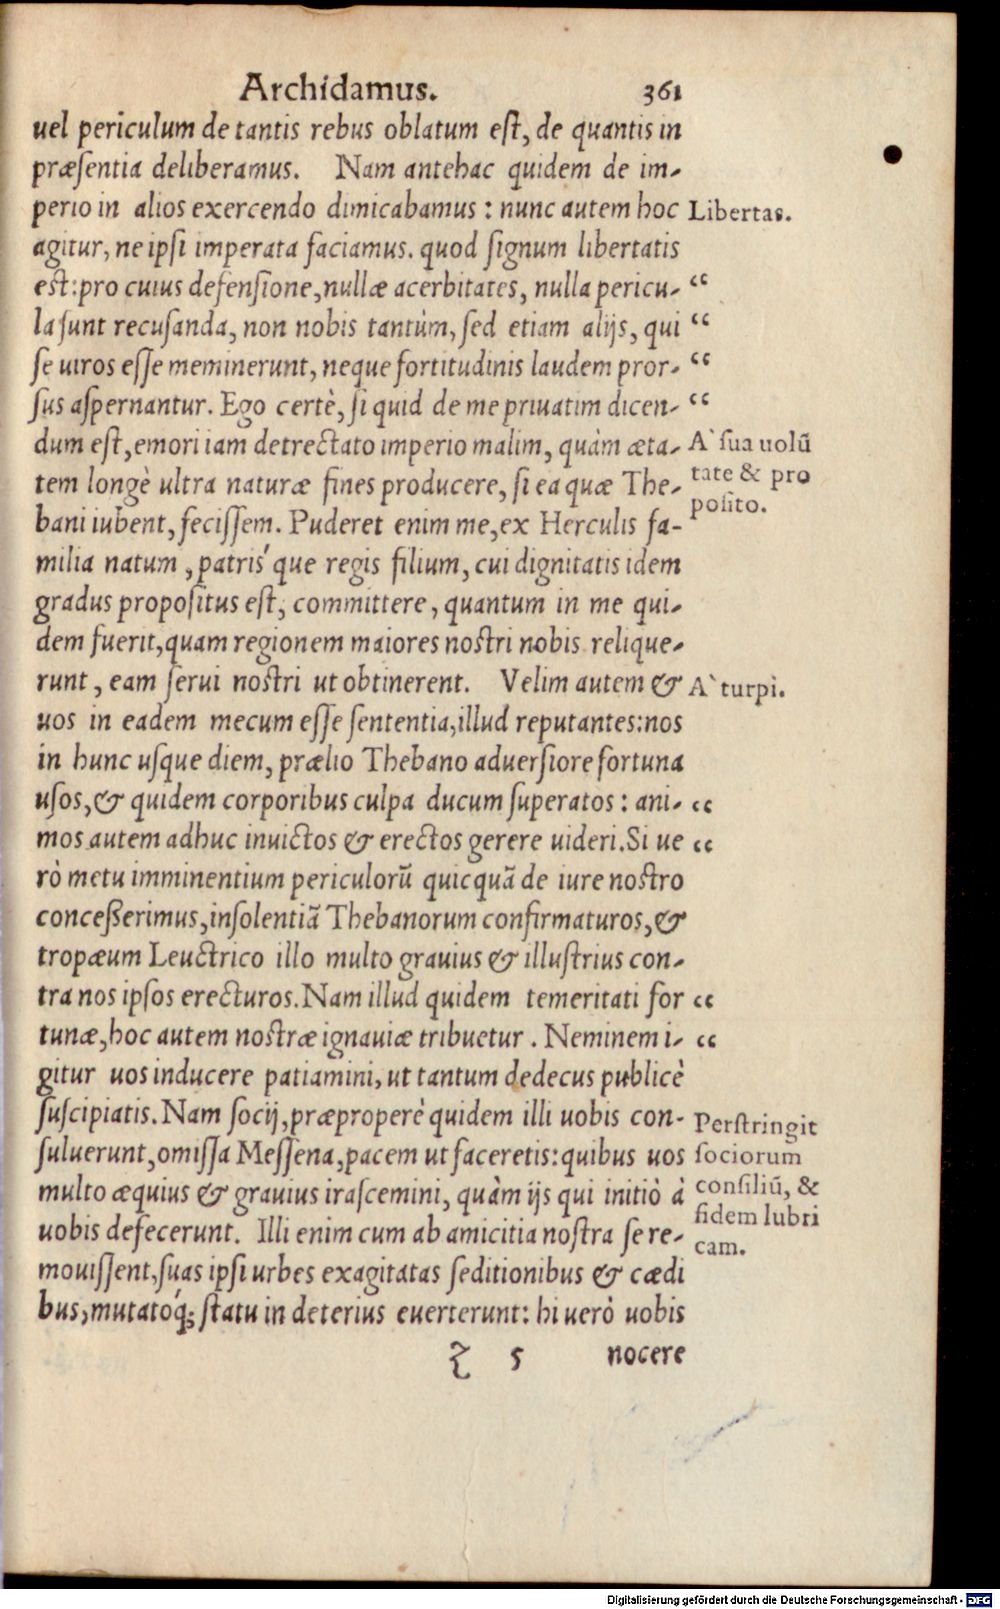 Archidamus. 361
uel periculum de tantis rebus oblatum eſt, de quantis in
præſentia deliberamus. Nam antehac quidem de im-
perio in alios exercendo dimicabamus : nunc autem hoc
Libertas.
agitur, ne ipſi imperata faciamus. quod ſignum libertatis
est: pro cuius defenſione, nullæ acerbitates, nulla pericu- “
la ſunt recuſanda, non nobis tantùm, ſed etiam alijs, qui “
ſe uiros eſſe meminerunt, neque fortitudinis laudem pror- “
ſus aſpernantur. Ego certè, ſi quid de me priuatim dicen- “
dum eſt, emori iam detrectato imperio malim, quàm æta-
A` ſua uolū
tate & pro
poſito.
tem longè ultra naturæ fines producere, ſi ea quæ The-
bani iubent, feciſſem. Puderet enim me, ex Herculis fa-
milia natum, patris´que regis filium, cui dignitatis idem
gradus propoſitus eſt, committere, quantum in me qui-
dem fuerit, quam regionem maiores noſtri nobis relique-
runt, eam ſerui noſtri ut obtinerent. Velim autem &
A` turpi.
uos in eadem mecum eſſe ſententia, illud reputantes: nos
in hunc uſque diem, prælio Thebano aduerſiore fortuna
uſos, & quidem corporibus culpa ducum ſuperatos : ani- “
mos autem adhuc inuictos & erectos gerere uideri. Si ue “
rò metu imminentium periculorū quicquā de iure noſtro
conceßerimus, inſolentiā Thebanorum confirmaturos, &
tropæum Leuctrico illo multo grauius & illuſtrius con-
tra nos ipſos erecturos. Nam illud quidem temeritati for “
tunæ, hoc autem noſtræ ignauiæ tribuetur . Neminem i- “
gitur uos inducere patiamini, ut tantum dedecus publicè
ſuſcipiatis. Nam ſocij, præproperè quidem illi uobis con-
Perſtringit
ſociorum
conſiliū, &
fidem lubri
cam.
ſuluerunt, omiſſa Meſſena, pacem ut faceretis: quibus uos
multo æquius & grauius iraſcemini, quàm ijs qui initiò à
uobis defecerunt. Illi enim cum ab amicitia noſtra ſe re-
mouiſſent, ſuas ipſi urbes exagitatas ſeditionibus & cædi
bus, mutatoq́; ſtatu in deterius euerterunt: hi uerò uobis
Z 5 nocere
Digitalisierung gefördert durch die Deutsche Forschungsgemeinschaft - DFG